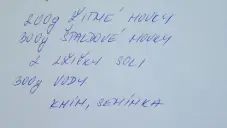 200g ŽITNÉ MOUKY
300g ŠPALDOVÉ MOUKY
2 LŽIČKY SOLI
300g VODY
KMÍN, SEMÍNKA